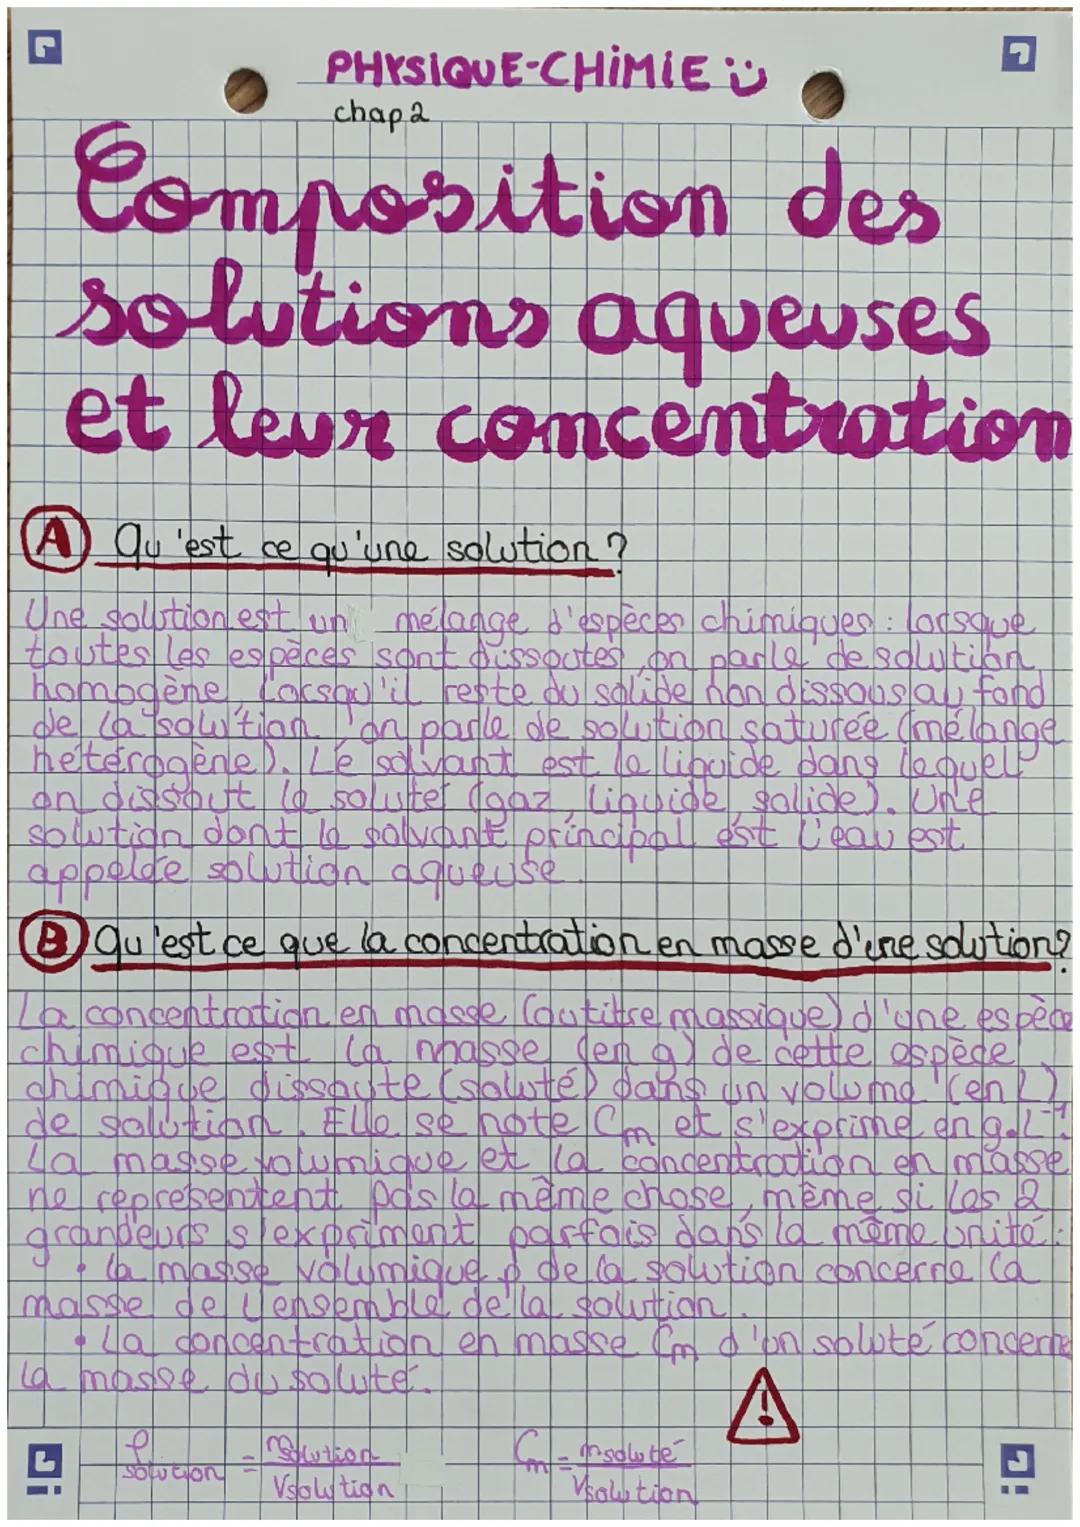 PHYSIQUE-CHIMIE
chap 2
Composition des
solutions aqueuses
et leur concentration
A Qu'est ce qu'une solution ?
Une solution est un mélange d'espèces chimiques : lorsque
toutes les espèces sont dissoutes, on parle de solution
homogène. Lorsqu'il reste du solide non dissous au fond
de la solution, on parle de solution saturée (mélange
hétérogène). Le solvant est le liquide dans lequel
on dissout le soluté (gaz, liquide, solide). Une
solution dont le solvant principal est l'eau est
appelée solution aqueuse.
B Qu'est ce que la concentration en masse d'une solution?
La concentration en masse (ou titre massique) d'une espèce
chimique est la masse (en g) de cette espèce
chimique dissoute (soluté) dans un volume (en L)
de solution. Elle se note Cm et s'exprime en g.L⁻¹.
La masse volumique et la concentration en masse
ne représentent pas la même chose, même si les 2
grandeurs s'expriment parfois dans la même unité :
• la masse volumique ρ de la solution concerne la
masse de l'ensemble de la solution.
• La concentration en masse Cm d'un soluté concerne
la masse du soluté.
ρsolution = msolution / Vsolution Cm = msoluté / Vsolution